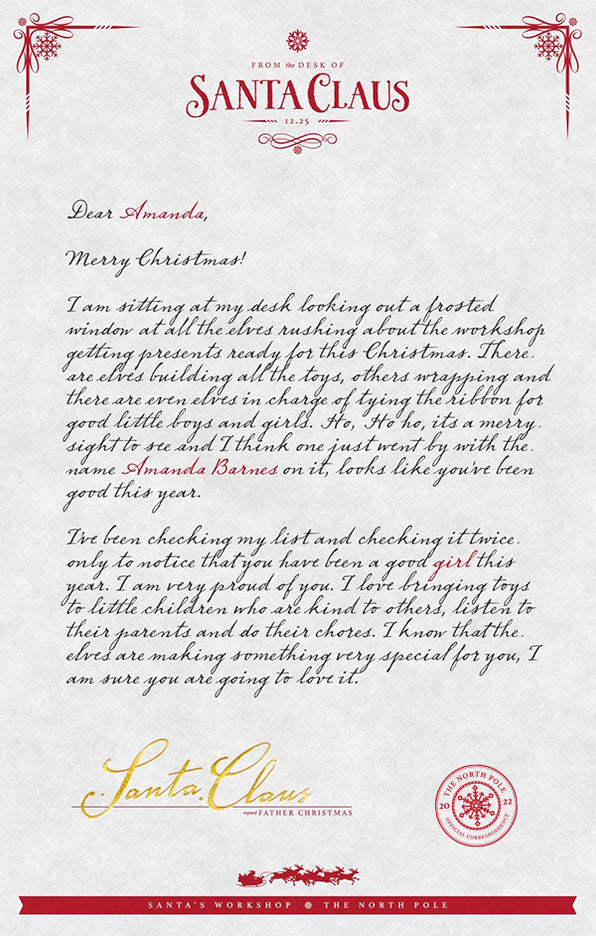 FROM the DESK OF
SANTA CLAUS
12.25
Dear Amanda,
Merry Christmas!
I am sitting at my desk looking out a frosted
window at all the elves rushing about the workshop
getting presents ready for this Christmas. There
are elves building all the toys, others wrapping and
there are even elves in charge of tying the ribbon for
good little boys and girls. Ho, Ho ho, its a merry
sight to see and I think one just went by with the
name Amanda Barnes on it, looks like you've been
good this year.
I've been checking my list and checking it twice
only to notice that you have been a good girl this
year. I am very proud of you. I love bringing toys
to little children who are kind to others, listen to
their parents and do their chores. I know that the
elves are making something very special for you, I
am sure you are going to love it.
Santa Claus
signed FATHER CHRISTMAS
THE NORTH POLE
20 22
OFFICIAL CORRESPONDENCE
SANTA'S WORKSHOP THE NORTH POLE